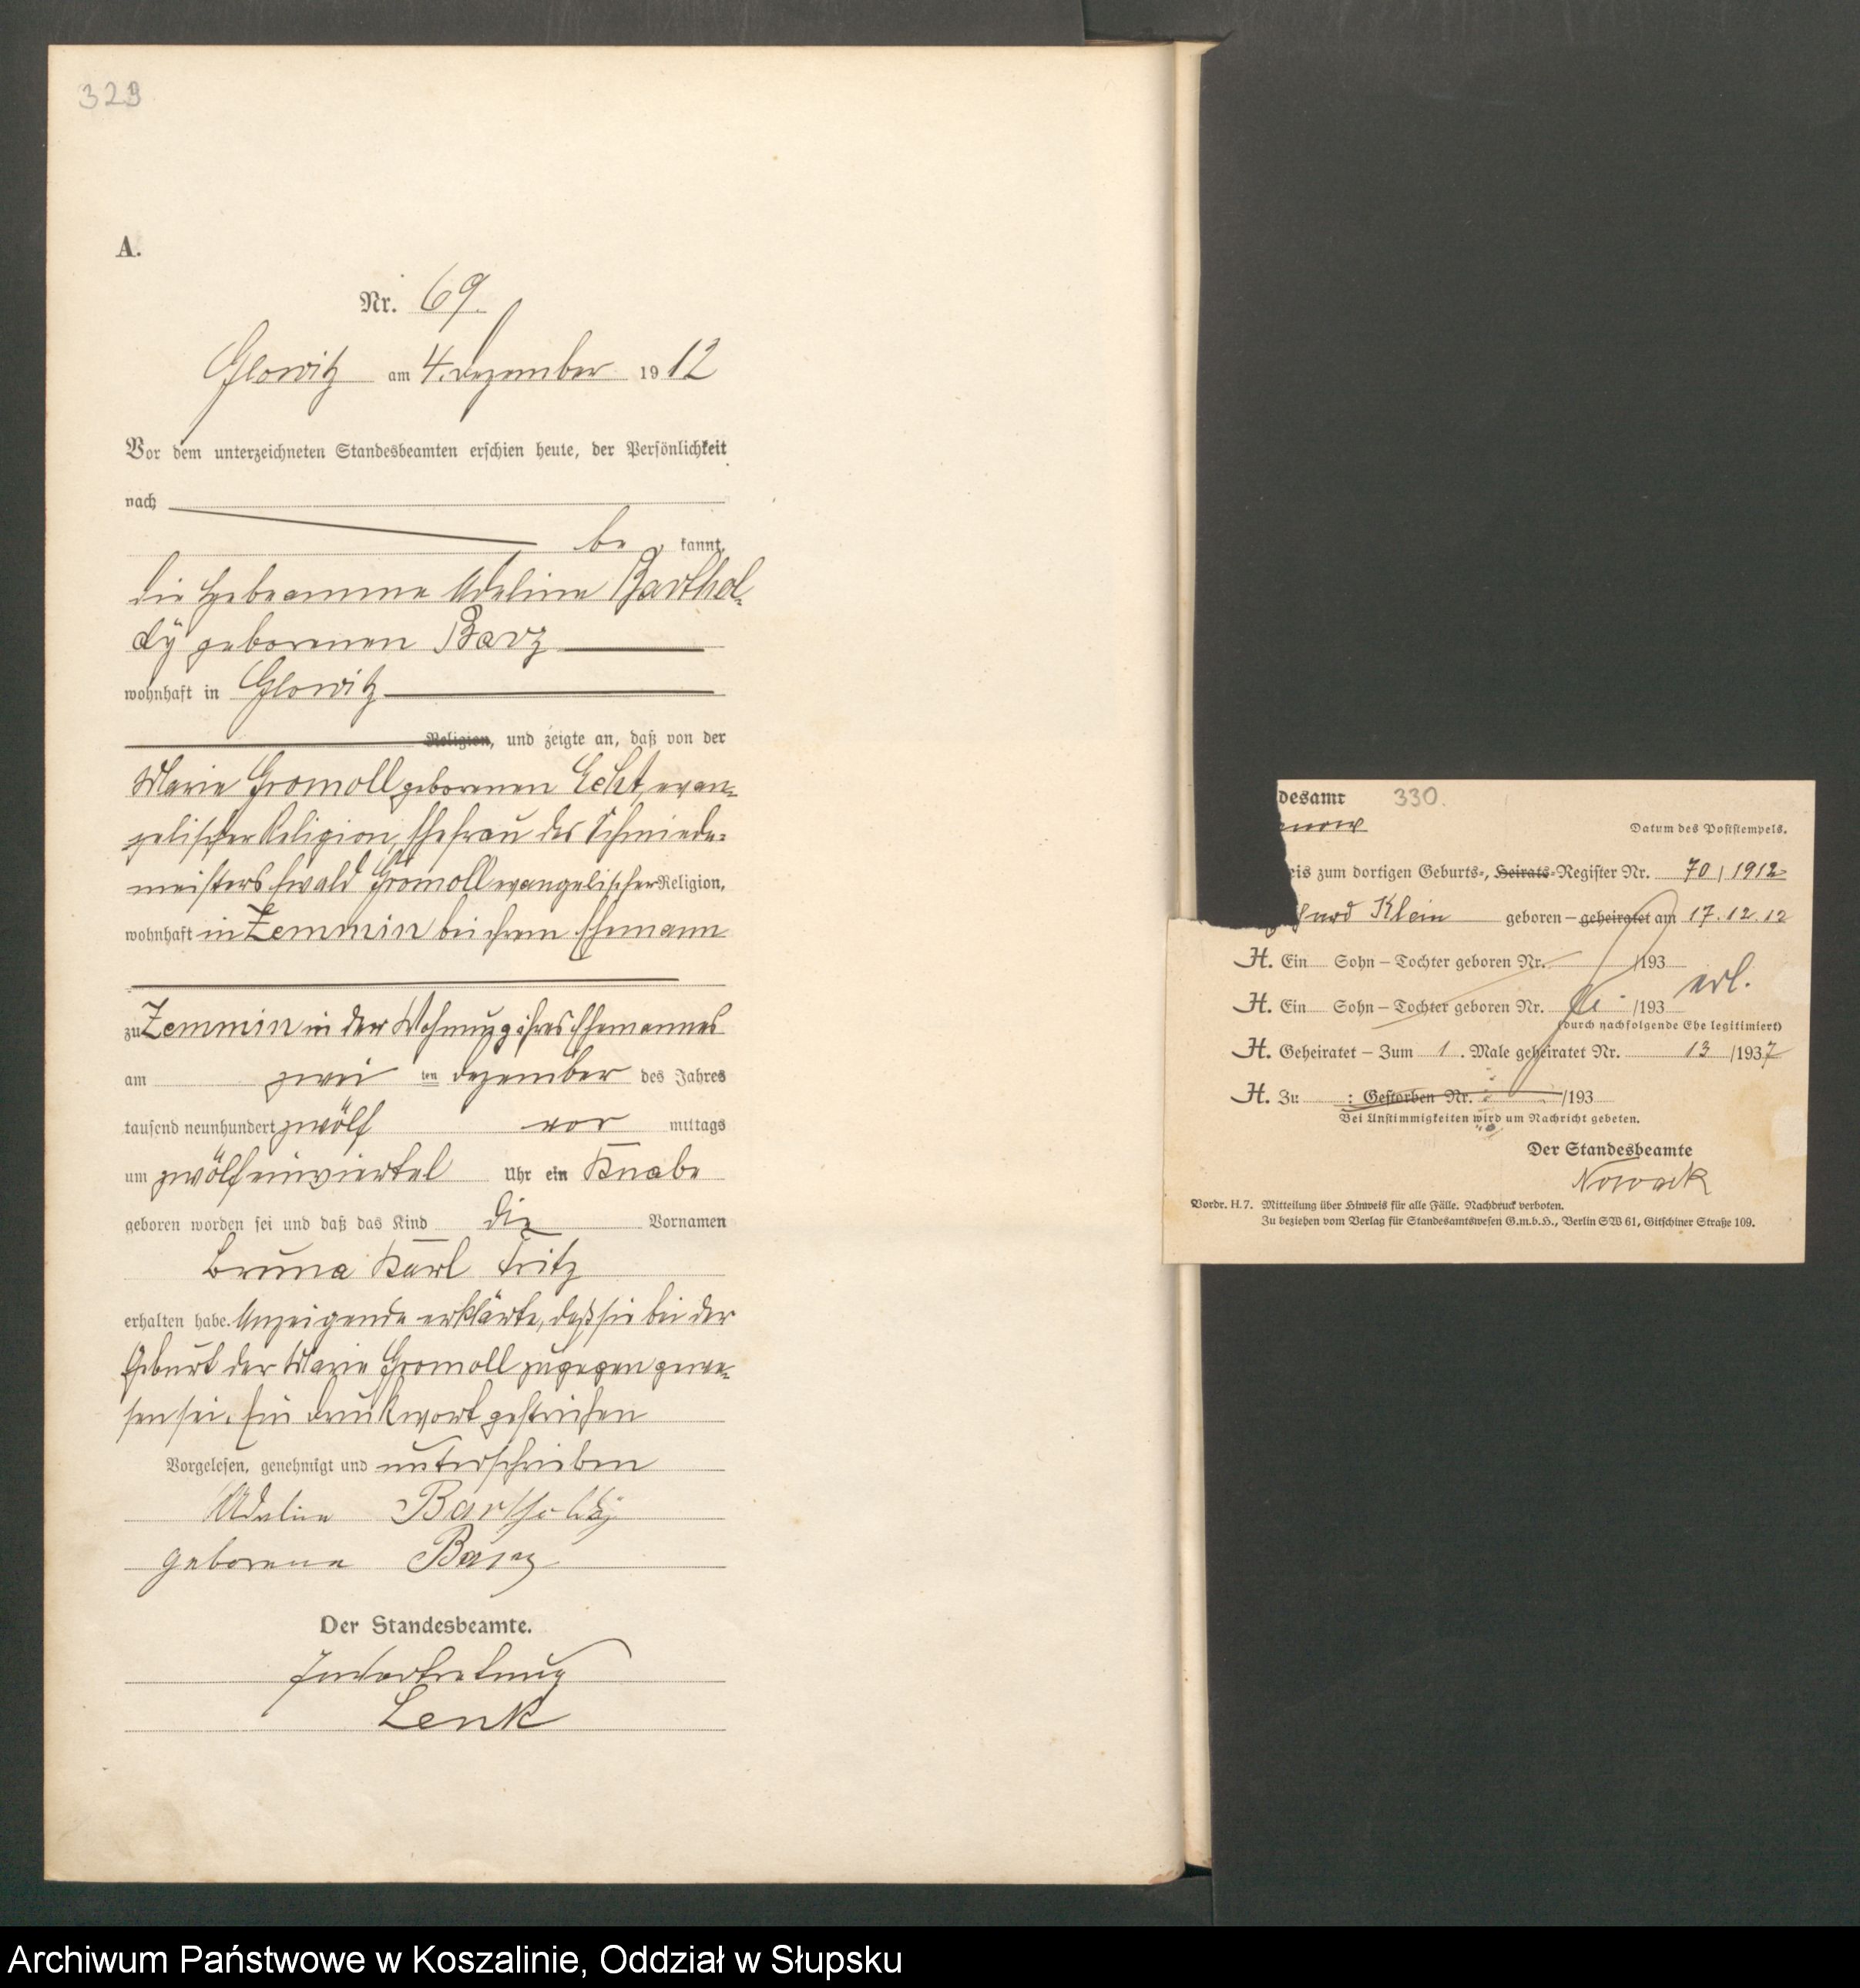 329
A.
Nr. 69.
Glowitz am 4. Dezember 1912
Vor dem unterzeichneten Standesbeamten erschien heute, der Persönlichkeit
nach
be kannt,
die Hebeamme Adeline Barthol-
dÿ geborenen Barz
wohnhaft in Glowitz
Religion, und zeigte an, daß von der
Marie Gromoll geborenen Echt, evan-
gelischer Religion, Ehefrau des Schmiede-
meisters Ewald Gromoll evangelischer Religion,
wohnhaft in Zemmin bei ihrem Ehemann
zu Zemmin in der Wohnung ihres Ehemannes
am zwei ten Dezember des Jahres
tausend neunhundert zwölf vor mittags
um zwölfeinviertel Uhr ein Knabe
geboren worden sei und daß das Kind die Vornamen
Bruno Karl Fritz
erhalten habe. Anzeigende erklärte, daß sie bei der
Geburt der Marie Gromoll zugegen gewe-
sen sei. Ein Druckwort gestrichen
Vorgelesen, genehmigt und unterschrieben
Adeline Bartholdÿ
geborene Barz
Der Standesbeamte.
In Vertretung
Lenk
desamt 330.
enow Datum des Poststempels.
eis zum dortigen Geburts-, Heirats-Register Nr. 70 / 1912
Klein geboren – geheiratet am 17.12.12
H. Ein Sohn – Tochter geboren Nr. /193
erl.
H. Ein Sohn – Tochter geboren Nr. /193
(durch nachfolgende Ehe legitimiert)
H. Geheiratet – Zum 1. Male geheiratet Nr. 13 /1937
H. Zu : Gestorben Nr. /193
Bei Unstimmigkeiten wird um Nachricht gebeten.
Der Standesbeamte
Nowack
Vordr. H.7. Mitteilung über Hinweis für alle Fälle. Nachdruck verboten.
Zu beziehen vom Verlag für Standesamtswesen G.m.b.H., Berlin SW 61, Gitschiner Straße 109.
Archiwum Państwowe w Koszalinie, Oddział w Słupsku